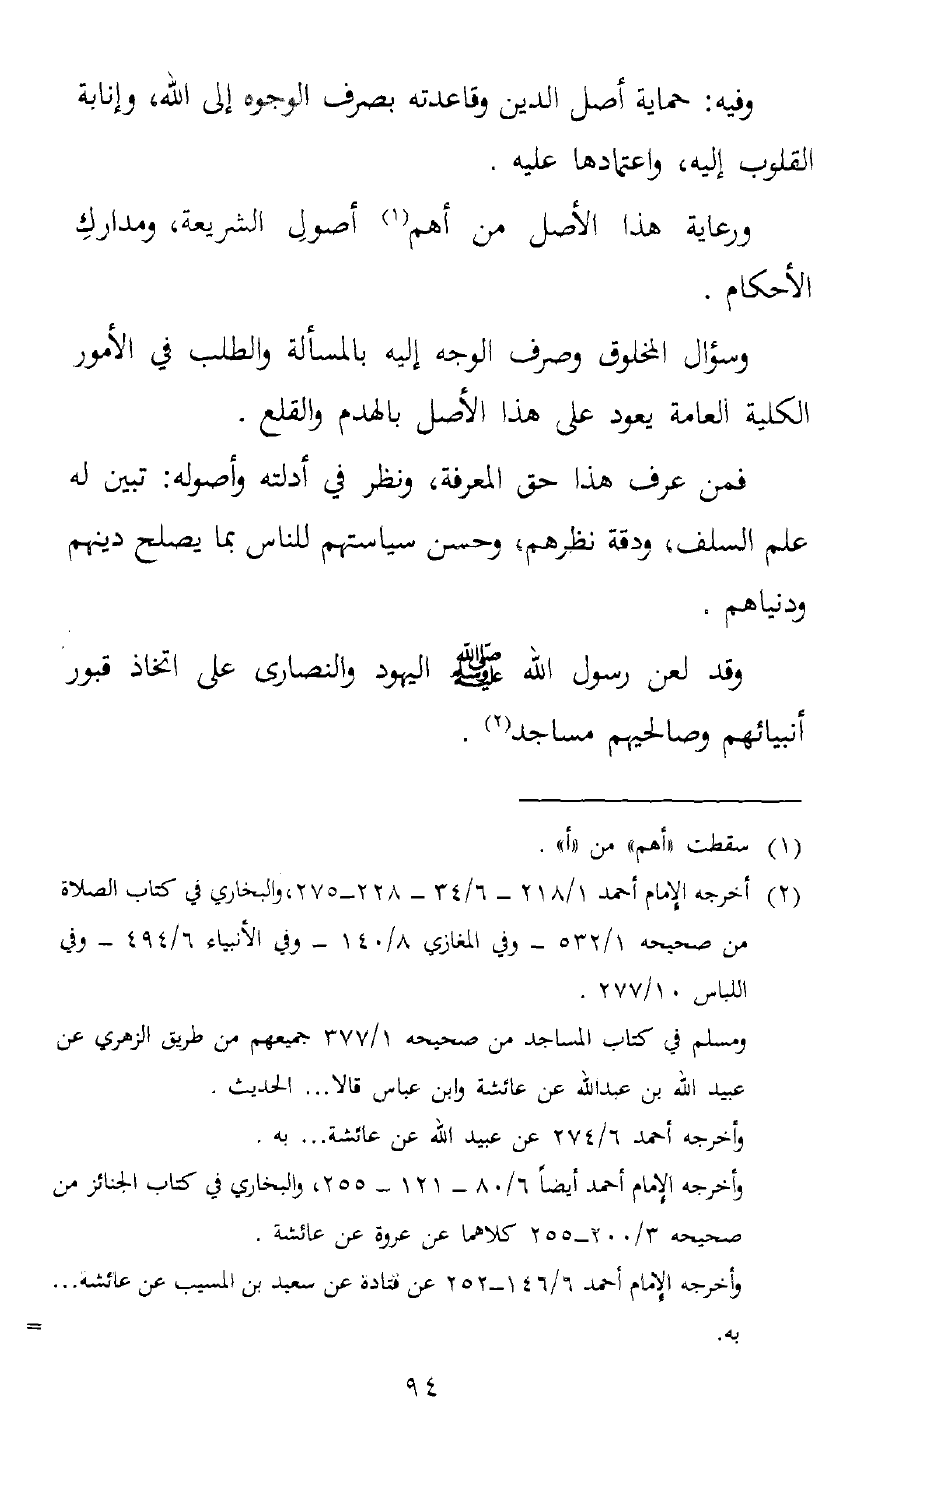 وفيه: حماية أصل الدين وقاعدته بصرف الوجوه إلى الله، وإنابة
القلوب إليه، واعتمادها عليه .
ورعاية هذا الأصل من أهم(١) أصولِ الشريعة، ومداركِ
الأحكام .
وسؤال المخلوق وصرف الوجه إليه بالمسألة والطلب في الأمور
الكلية العامة يعود على هذا الأصل بالهدم والقلع .
فمن عرف هذا حق المعرفة، ونظر في أدلته وأصوله: تبين له
علم السلف، ودقة نظرهم، وحسن سياستهم للناس بما يصلح دينهم
ودنياهم .
وقد لعن رسول الله ﷺ اليهود والنصارى على اتخاذ قبور
أنبيائهم وصالحيهم مساجد(٢) .
(١) سقطت «أهم» من «أ» .
(٢) أخرجه الإمام أحمد ٢١٨/١ ــ ٣٤/٦ ــ ٢٢٨ــ٢٧٥، والبخاري في كتاب الصلاة
من صحيحه ٥٣٢/١ ــ وفي المغازي ١٤٠/٨ ــ وفي الأنبياء ٤٩٤/٦ ــ وفي
اللباس ٢٧٧/١٠ .
ومسلم في كتاب المساجد من صحيحه ٣٧٧/١ جميعهم من طريق الزهري عن
عبيد الله بن عبدالله عن عائشة وابن عباس قالا... الحديث .
وأخرجه أحمد ٢٧٤/٦ عن عبيد الله عن عائشة... به .
وأخرجه الإمام أحمد أيضاً ٨٠/٦ ــ ١٢١ ــ ٢٥٥، والبخاري في كتاب الجنائز من
صحيحه ٢٠٠/٣ــ٢٥٥ كلاهما عن عروة عن عائشة .
وأخرجه الإمام أحمد ١٤٦/٦ــ٢٥٢ عن قتادة عن سعيد بن المسيب عن عائشة...
به. =
٩٤